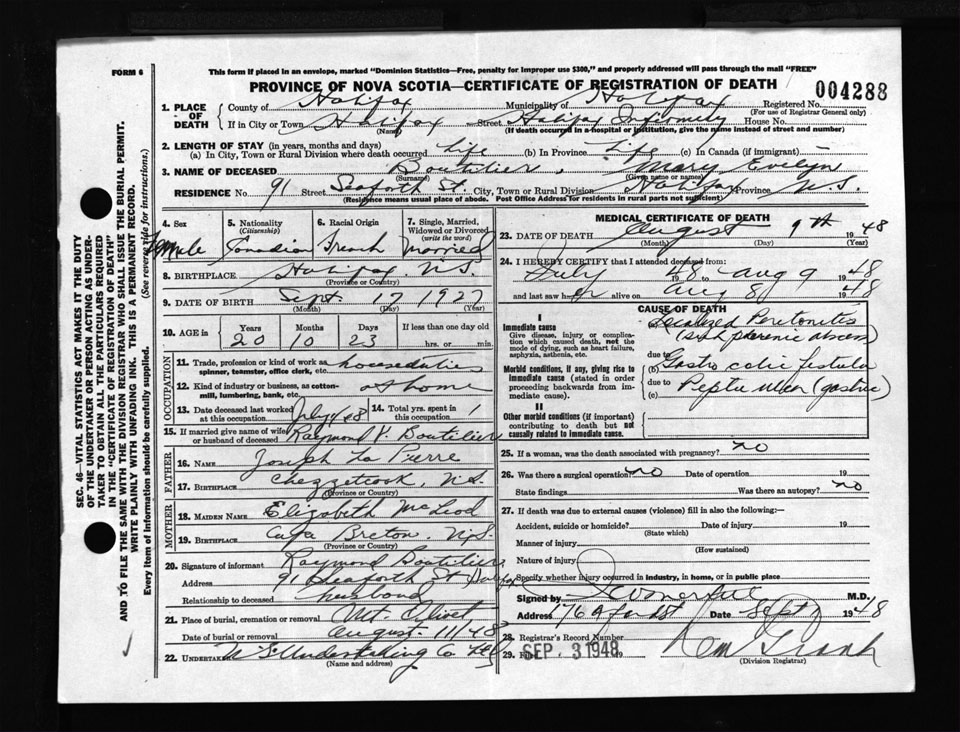 FORM 6
This form if placed in an envelope, marked "Dominion Statistics—Free, penalty for improper use $300," and properly addressed will pass through the mail "FREE"
PROVINCE OF NOVA SCOTIA—CERTIFICATE OF REGISTRATION OF DEATH
004288
1. PLACE OF DEATH
County of Halifax Municipality of Halifax Registered No.
(For use of Registrar General only)
If in City or Town Halifax Street Halifax Infirmary House No.
(Name) (If death occurred in a hospital or institution, give the name instead of street and number)
2. LENGTH OF STAY (in years, months and days)
(a) In City, Town or Rural Division where death occurred Life (b) In Province Life (c) In Canada (if immigrant)
3. NAME OF DECEASED Boutilier, Mary Evelyn
(Surname) (Given name or names)
RESIDENCE No. 91 Street Seaforth St. City, Town or Rural Division Halifax Province N.S.
(Residence means usual place of abode. Post Office Address for residents in rural parts not sufficient)
4. Sex Female
5. Nationality (Citizenship) Canadian
6. Racial Origin French
7. Single, Married, Widowed or Divorced (write the word) Married
8. BIRTHPLACE Halifax N.S.
(Province or Country)
9. DATE OF BIRTH Sept 17 1927
(Month) (Day) (Year)
10. AGE in Years Months Days If less than one day old
20 10 23 hrs. or min.
OCCUPATION
11. Trade, profession or kind of work as spinner, teamster, office clerk, etc. houseduties
12. Kind of industry or business, as cotton-mill, lumbering, bank, etc. at home
13. Date deceased last worked at this occupation July 48
14. Total yrs. spent in this occupation 1
15. If married give name of wife or husband of deceased Raymond V. Boutilier
FATHER
16. NAME Joseph La Pierre
17. BIRTHPLACE Chezzetcook, N.S.
(Province or Country)
MOTHER
18. MAIDEN NAME Elizabeth McLeod
19. BIRTHPLACE Cape Breton, N.S.
(Province or Country)
20. Signature of informant Raymond Boutilier
Address 91 Seaforth St Halifax
Relationship to deceased husband
21. Place of burial, cremation or removal Mt. Olivet
Date of burial or removal August 11/48
22. Undertaker N.S. Undertaking Co Ltd
(Name and address)
MEDICAL CERTIFICATE OF DEATH
23. DATE OF DEATH August 9th 1948
(Month) (Day) (Year)
24. I HEREBY CERTIFY that I attended deceased from:
July 1948 to Aug 9 1948
and last saw her alive on Aug 8 1948
CAUSE OF DEATH
I
Immediate cause
Give disease, injury or complication which caused death, not the mode of dying, such as heart failure, asphyxia, asthenia, etc.
(a) Localized Peritonitis
(subphrenic abscess)
due to
Morbid conditions, if any, giving rise to immediate cause (stated in order proceeding backwards from immediate cause).
(b) Gastro colic fistula
due to
(c) Peptic ulcer (gastric)
II
Other morbid conditions (if important) contributing to death but not causally related to immediate cause.
25. If a woman, was the death associated with pregnancy? no
26. Was there a surgical operation? no Date of operation 19
State findings Was there an autopsy? no
27. If death was due to external causes (violence) fill in also the following:—
Accident, suicide or homicide? Date of injury 19
(State which)
Manner of injury
(How sustained)
Nature of injury
Specify whether injury occurred in industry, in home, or in public place
Signed by M.D.
Address Date Sept 1948
28. Registrar's Record Number
29. Filed SEP. 3 1948 19
(Division Registrar)
SEC. 46—VITAL STATISTICS ACT MAKES IT THE DUTY
OF THE UNDERTAKER OR PERSON ACTING AS UNDER-
TAKER TO OBTAIN ALL THE PARTICULARS REQUIRED
IN THE "CERTIFICATE OF REGISTRATION OF DEATH"
AND TO FILE THE SAME WITH THE DIVISION REGISTRAR WHO SHALL ISSUE THE BURIAL PERMIT.
WRITE PLAINLY WITH UNFADING INK. THIS IS A PERMANENT RECORD.
Every item of information should be carefully supplied. (See reverse side for instructions.)